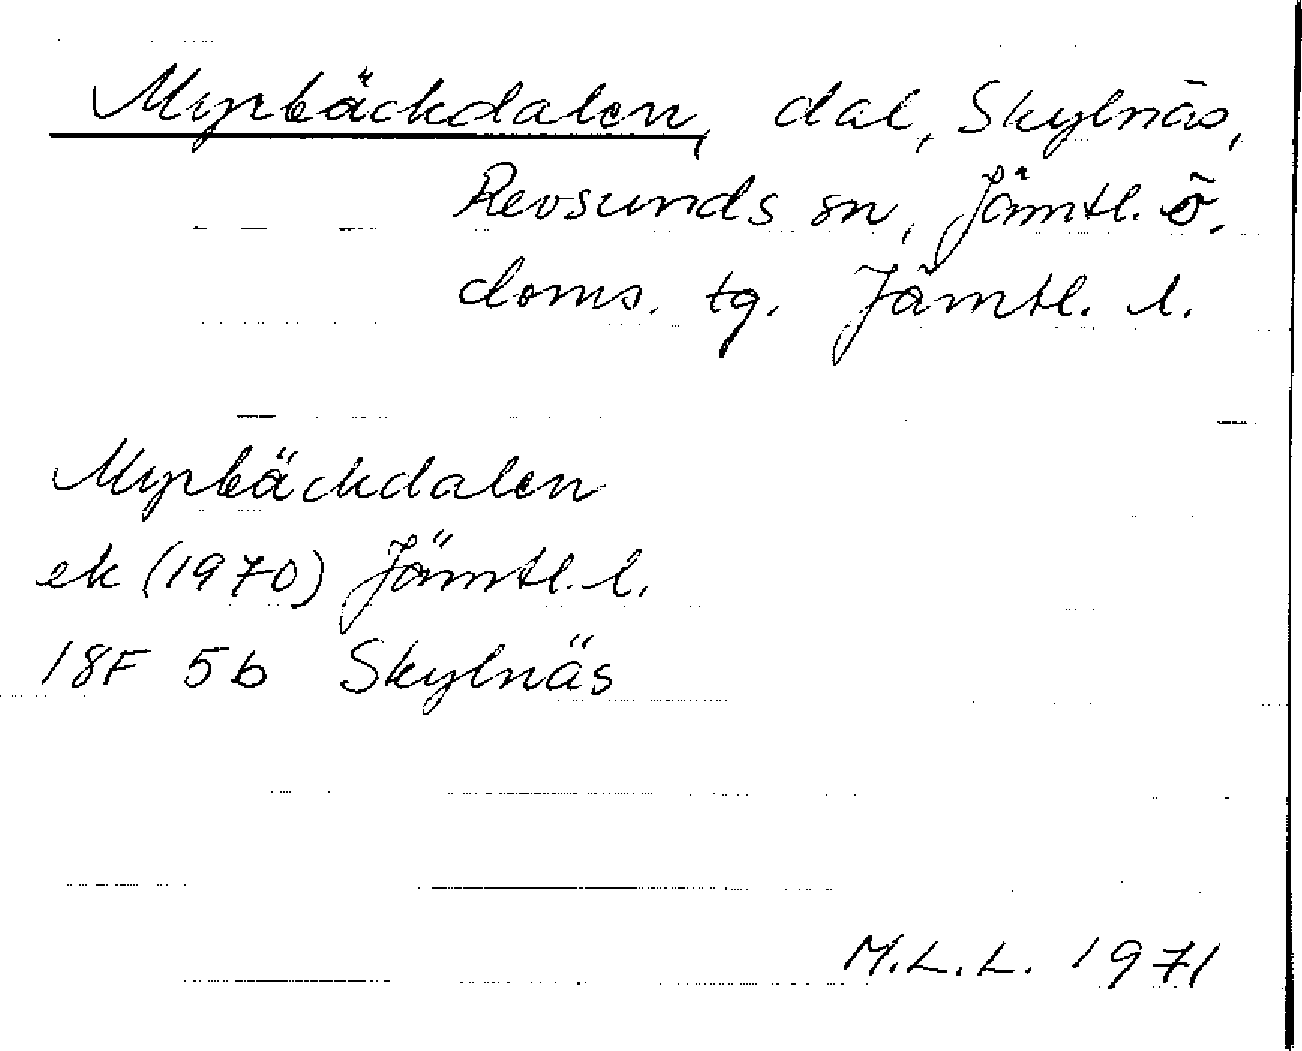 Myrbäckdalen, dal, Skylnäs,
Revsunds sn, Jämtl. ö.
doms. tg. Jämtl. l.
Myrbäckdalen
ek (1970) Jämtl. l.
18F 5b Skylnäs
M.L.L. 1971